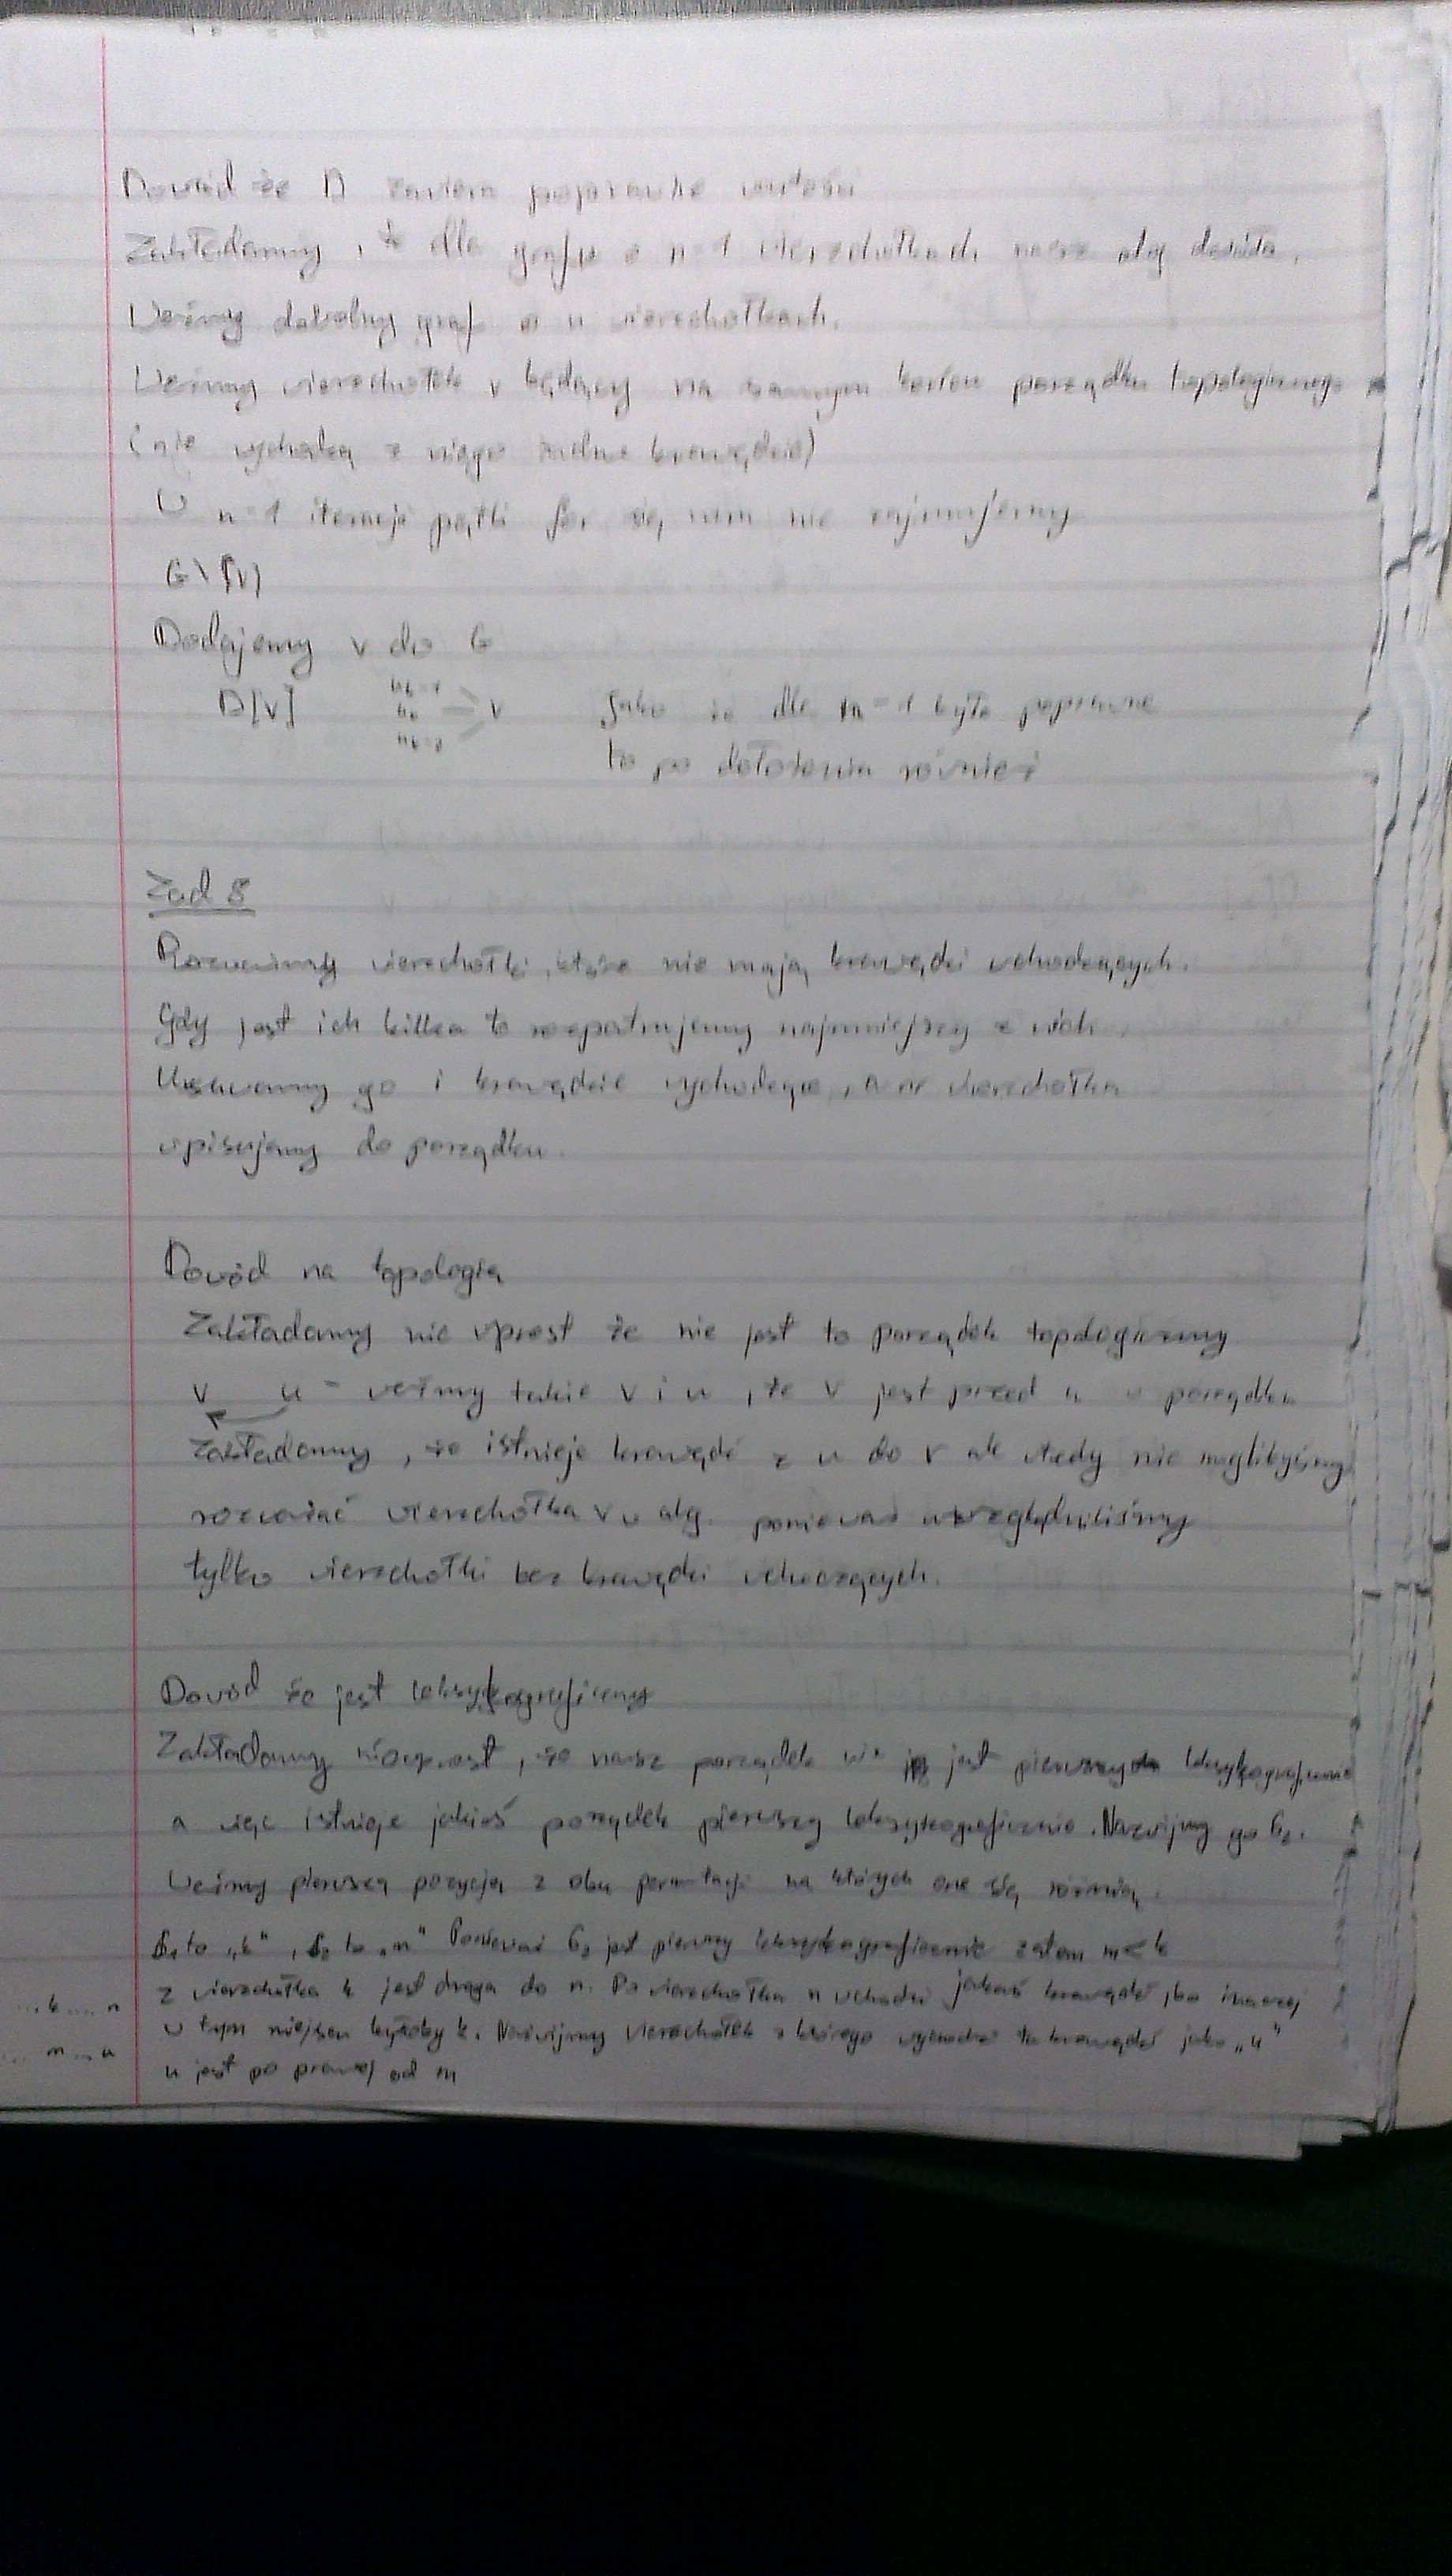 Dowód że D zawiera poprawne wartości
Zakładamy, że dla grafu o n-1 wierzchołkach nasz alg działa.
Weźmy dowolny graf o n wierzchołkach.
Weźmy wierzchołek v będący na samym końcu porządku topologicznego
(nie wychodzą z niego żadne krawędzie)
W n-1 iteracji pętli for się nim nie zajmujemy
G\{v}
Dodajemy v do G
D[v] v Jako że dla n-1 było poprawne
to po dołożeniu również
Zad 8
Rozważmy wierzchołki, które nie mają krawędzi wchodzących.
Gdy jest ich kilka to rozpatrujemy najmniejszy z nich.
Usuwamy go i krawędzie wychodzące, a nr wierzchołka
wpisujemy do porządku.
Dowód na topologię
Zakładamy nie wprost że nie jest to porządek topologiczny
v u - weźmy takie v i u, że v jest przed u w porządku
Zakładamy, że istnieje krawędź z u do v ale wtedy nie moglibyśmy
rozważać wierzchołka v w alg. ponieważ uwzględniliśmy
tylko wierzchołki bez krawędzi wchoczących.
Dowód że jest leksykograficzny
Zakładamy nie wprost, że nasz porządek nie jest pierwszy leksykograficznie
a więc istnieje jakiś porządek pierwszy leksykograficznie. Nazwijmy go G₂.
Weźmy pierwszą pozycję z obu permutacji na których one się różnią.
to „k", to „m" Ponieważ G₂ jest pierwszy leksykograficznie zatem m<k
...k....n z wierzchołka k jest droga do n. Do wierzchołka n wchodzi jakaś krawędź, bo inaczej
... m...u w tym miejscu byłoby k. Nazwijmy wierzchołek z którego wychodzi ta krawędź jako „u"
u jest po prawej od m